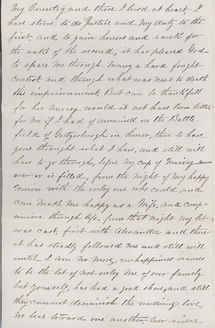 my Country and those I loved at heart. I
have strove to do Justice and my duty to the
first, and to gain honor and rank for
the sake of the second, it has pleased God
to spare me through many a hard fought
contest and through what was next to death
the imprisonment. But can I be thankful
for his mercy. would it not have been better
for me if I had of remained on the Battle
field of Gettysburgh in honor, than to have
gone through what I have, and still will
have to go through, before my cup of misery
over or is filled, from the night of my happy
union with the only one who could and
can make me happy as a Wife, and comp-
anion through life, from that night my lot
was cast first with Alexander and then
it has steadily followed me and still will
until I am no more, unhappiness seems
to be the lot of not only me of our family
but yourself, has had a good share, and still
they can not deminish the undieing love
we bear toward one another